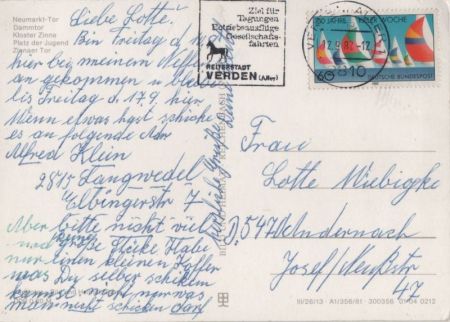 Neumarkt-Tor
Dammtor
Kloster Zinne
Platz der Jugend
Zinnaer Tor
Liebe Lotte.
Bin Freitag d.
hier bei meinem Neffen
angekommen u. bleibe
bis Freitag d. 17.9. hier
Wenn etwas hast schicke
es an folgende Adr
Alfred Klein
2815 Langwedel
Elbingerstr 7
Aber bitte nicht viel
große Stücke Habe
nur einen kleinen Koffer
was Du selber schicken
kannst nur was
man nicht schicken darf
Herzliche Grüße
Ziel für
Tagungen
Betriebsausflüge
Gesellschafts-
fahrten
REITERSTADT
VERDEN (Aller)
VERDEN
17.9.82-12
100 JAHRE KIELER WOCHE
60+10
DEUTSCHE BUNDESPOST
Frau
Lotte Wiebigke
D. 547 Andernach
Josef/Neußstr
47
III/26/13 A1/356/81 300356 01 14 0212